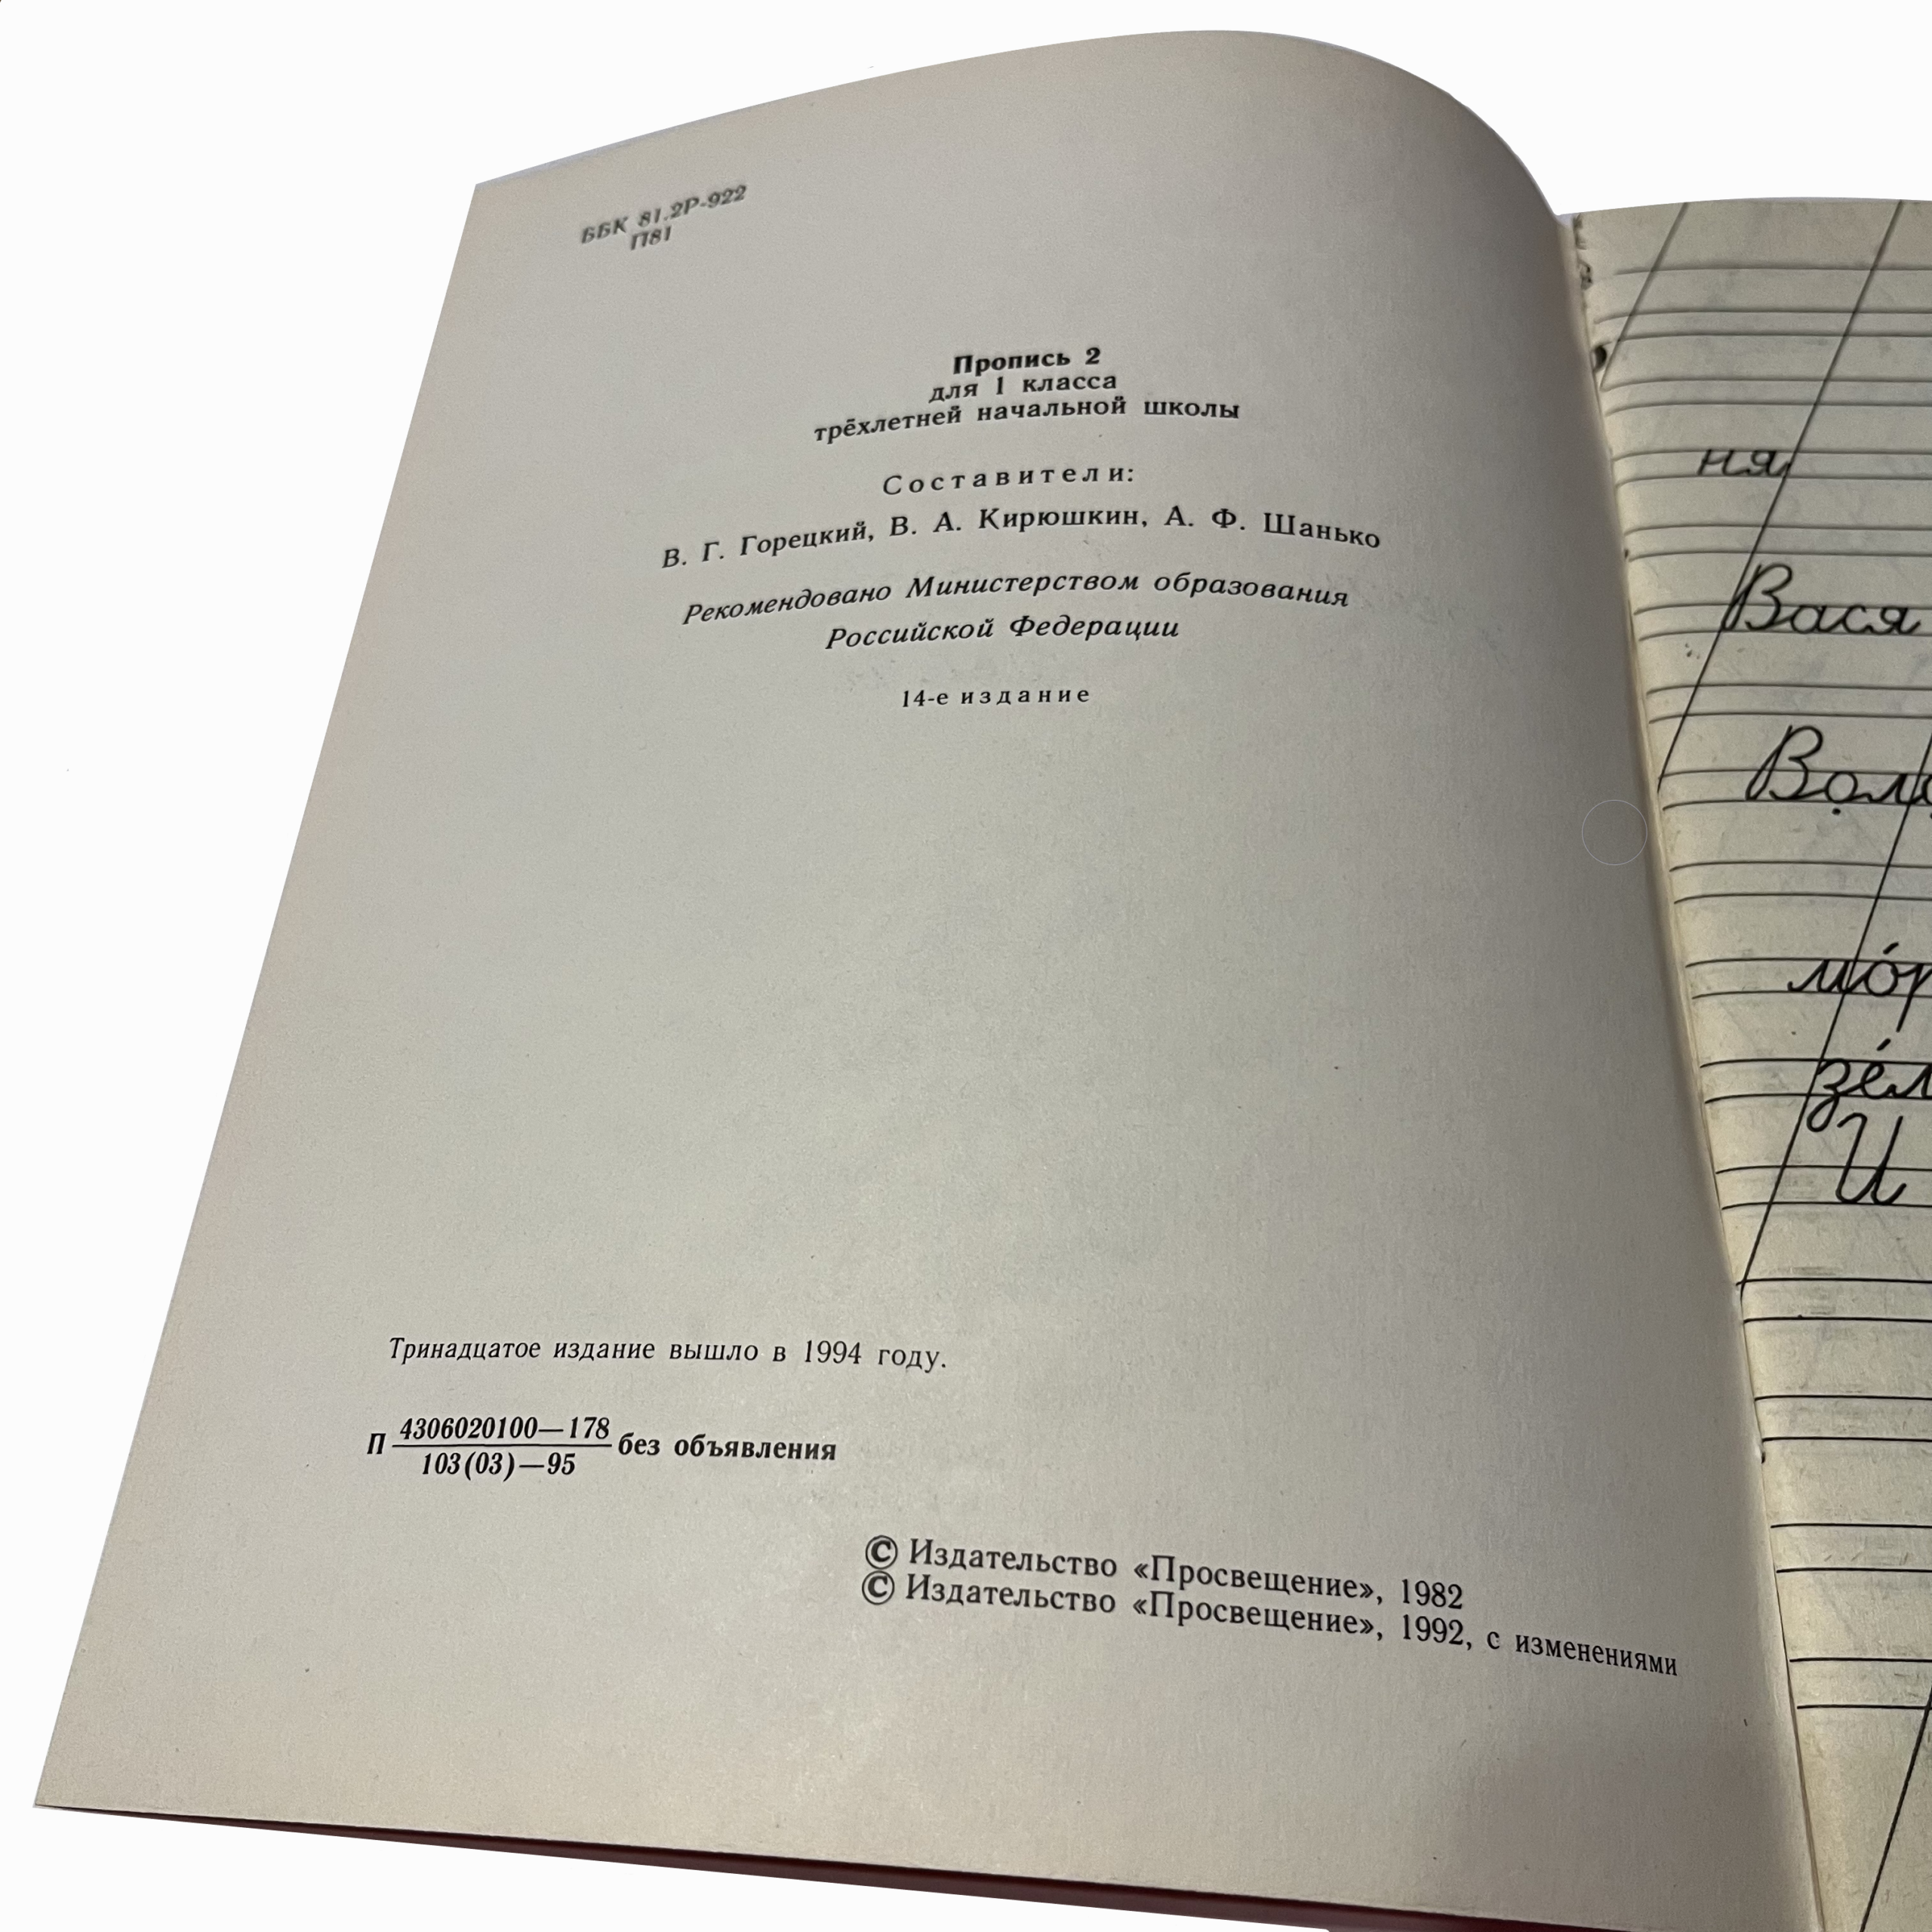 ББК 81.2Р-922
П81
Пропись 2
для 1 класса
трёхлетней начальной школы
Составители:
В. Г. Горецкий, В. А. Кирюшкин, А. Ф. Шанько
Рекомендовано Министерством образования
Российской Федерации
14-е издание
Тринадцатое издание вышло в 1994 году.
П 4306020100—178
103(03)—95 без объявления
© Издательство «Просвещение», 1982
© Издательство «Просвещение», 1992, с изменениями
ня
Вася
И